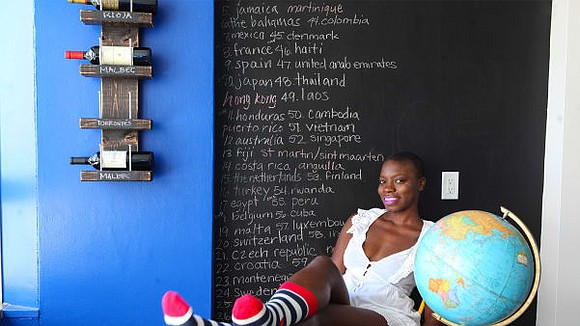 RIOJA
MALBEC
TORRONTES
MALBEC
5. jamaica martinique
the bahamas 44. colombia
7. mexico 45. denmark
8. france 46. haiti
9. spain 47. united arab emirates
10. japan 48. thailand
hong kong 49. laos
11. honduras 50. cambodia
puerto rico 51. vietnam
12. australia 52. singapore
13. fiji st martin/sint maarten
14. costa rica, anguilla
15. the netherlands 53. finland
16. turkey 54. rwanda
17. egypt 55. peru
18. belgium 56. cuba
19. malta 57. luxembou
20. switzerland 58.
21. czech republic
22. croatia 59
23. montenegro
24. Sweden